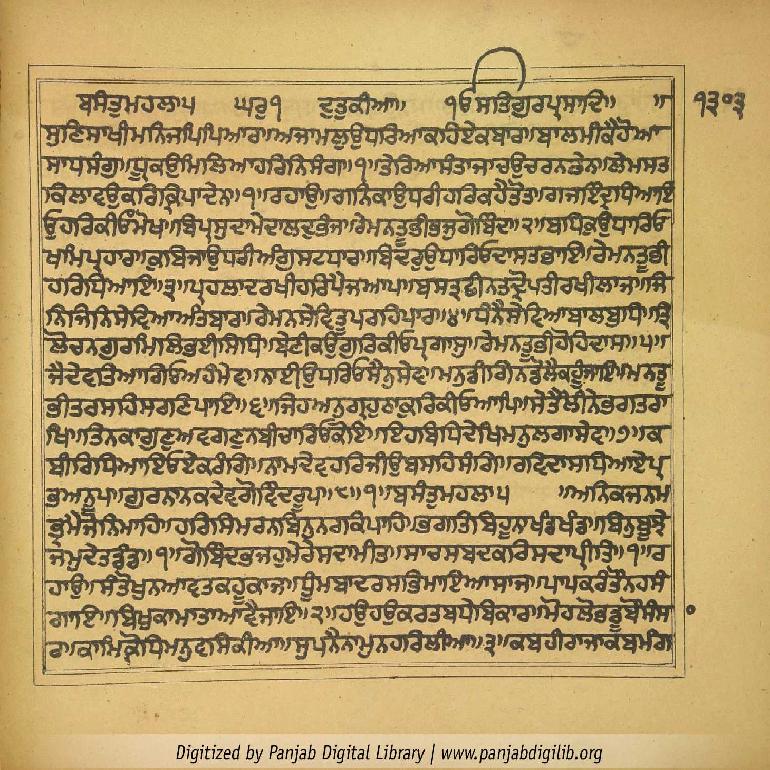 ਬਸੰਤੁਮਹਲਾ੫ ਘਰੁ੧ ਦੁਤੁਕੀਆ॥ ੧ਓਸਤਿਗੁਰਪ੍ਰਸਾਦਿ॥ ॥ ੧੩੦੩
ਸੁਣਿਸਾਖੀਮਨਿਜਪਿਪਿਆਰ॥ਅਜਾਮਲੁਉਧਰਿਆਕਹਿਏਕਬਾਰ॥ਬਾਲਮੀਕੈਹੋਆ
ਸਾਧਸੰਗੁ॥ਧ੍ਰੂਕਉਮਿਲਿਆਹਰਿਨਿਸੰਗ॥੧॥ਤੇਰਿਆਸੰਤਾਜਾਚਉਚਰਨਰੇਨ॥ਲੇਮਸਤ
ਕਿਲਾਵਉਕਰਿਕ੍ਰਿਪਾਦੇਨ॥੧॥ਰਹਾਉ॥ਗਨਿਕਾਉਧਰੀਹਰਿਕਹੈਤੋਤ॥ਗਜਇੰਦ੍ਰਧਿਆਇ
ਓਹਰਿਕੀਓਮੋਖ॥ਬਿਪ੍ਰਸੁਦਾਮੇਦਾਲਦੁਭੰਜ॥ਰੇਮਨਤੂਭੀਭਜੁਗੋਬਿੰਦ॥੨॥ਬਧਿਕੁਉਧਾਰਿਓ
ਖਮਿਪ੍ਰਹਾਰ॥ਕੁਬਿਜਾਉਧਰੀਅੰਗੁਸਟਧਾਰ॥ਬਿਦਰੁਉਧਾਰਿਓਦਾਸਤਭਾਇ॥ਰੇਮਨਤੂਭੀ
ਹਰਿਧਿਆਇ॥੩॥ਪ੍ਰਹਲਾਦਰਖੀਹਰਿਪੈਜਆਪ॥ਬਸਤ੍ਰਛੀਨਤਦ੍ਰੋਪਤੀਰਖੀਲਾਜ॥ਜਿ
ਨਿਜਿਨਿਸੇਵਿਆਅੰਤਬਾਰ॥ਰੇਮਨਸੇਵਿਤੂਪਰਹਿਪਾਰ॥੪॥ਧੰਨੈਸੇਵਿਆਬਾਲਬੁਧਿ॥ਤ੍ਰਿ
ਲੋਚਨਗੁਰਮਿਲਿਭਈਸਿਧਿ॥ਬੇਣੀਕਉਗੁਰਿਕੀਓਪ੍ਰਗਾਸੁ॥ਰੇਮਨਤੂਭੀਹੋਹਿਦਾਸ॥੫॥
ਜੈਦੇਵਤਿਆਗਿਓਅਹੰਮੇਵ॥ਨਾਈਉਧਰਿਓਸੈਨੁਸੇਵ॥ਮਨੁਡੀਗਿਨਡੋਲੈਕਹੂੰਜਾਇ॥ਮਨਤੂ
ਭੀਤਰਸਹਿਸਰਣਿਪਾਇ॥੬॥ਜਿਹਅਨੁਗ੍ਰਹੁਠਾਕੁਰਿਕੀਓਆਪਿ॥ਸੇਤੈਂਲੀਨੇਭਗਤਰਾ
ਖਿ॥ਤਿਨਕਾਗੁਣੁਅਵਗਣੁਨਬੀਚਾਰਿਓਕੋਇ॥ਇਹਬਿਧਿਦੇਖਿਮਨੁਲਗਾਸੇਵ॥੭॥ਕ
ਬੀਰਿਧਿਆਇਓਏਕਰੰਗ॥ਨਾਮਦੇਵਹਰਿਜੀਉਬਸਹਿਸੰਗਿ॥ਰਵਿਦਾਸਧਿਆਏਪ੍ਰ
ਭਅਨੂਪ॥ਗੁਰਨਾਨਕਦੇਵਗੋਵਿੰਦਰੂਪ॥੮॥੧॥ਬਸੰਤੁਮਹਲਾ੫ ॥ਅਨਿਕਜਨਮ
ਭ੍ਰਮੇਜੋਨਿਮਾਹਿ॥ਹਰਿਸਿਮਰਨਬਿਨੁਨਰਕਿਪਾਹਿ॥ਭਗਤਿਬਿਹੂਨਾਖੰਡਖੰਡ॥ਬਿਨੁਬੂਝੇ
ਜਮੁਦੇਤਡੰਡ॥੧॥ਗੋਬਿੰਦਭਜਹੁਮੇਰੇਸਦਾਮੀਤ॥ਸਾਚਸਬਦਕਰਿਸਦਾਪ੍ਰੀਤਿ॥੧॥ਰ
ਹਾਉ॥ਸੰਤੋਖੁਨਆਵਤਕਹੂੰਕਾਜ॥ਧੂੰਮਬਾਦਰਸਭਿਮਾਇਆਸਾਜ॥ਪਾਪਕਰੰਤੌਨਹਸੰ
ਗਾਇ॥ਬਿਖੁਕਾਮਾਤਾਆਵੈਜਾਇ॥੨॥ਹਉਹਉਕਰਤਬਧੇਬਿਕਾਰ॥ਮੋਹਲੋਭਡੂਬੌਸੰਸ
ਰ॥ਕਾਮਿਕ੍ਰੋਧਿਮਨੁਵਸਿਕੀਆ॥ਸੁਪਨੈਨਾਮੁਨਹਰਿਲੀਆ॥੩॥ਕਬਹੀਰਾਜਾਕਬਮੰਗ
Digitized by Panjab Digital Library | www.panjabdigilib.org